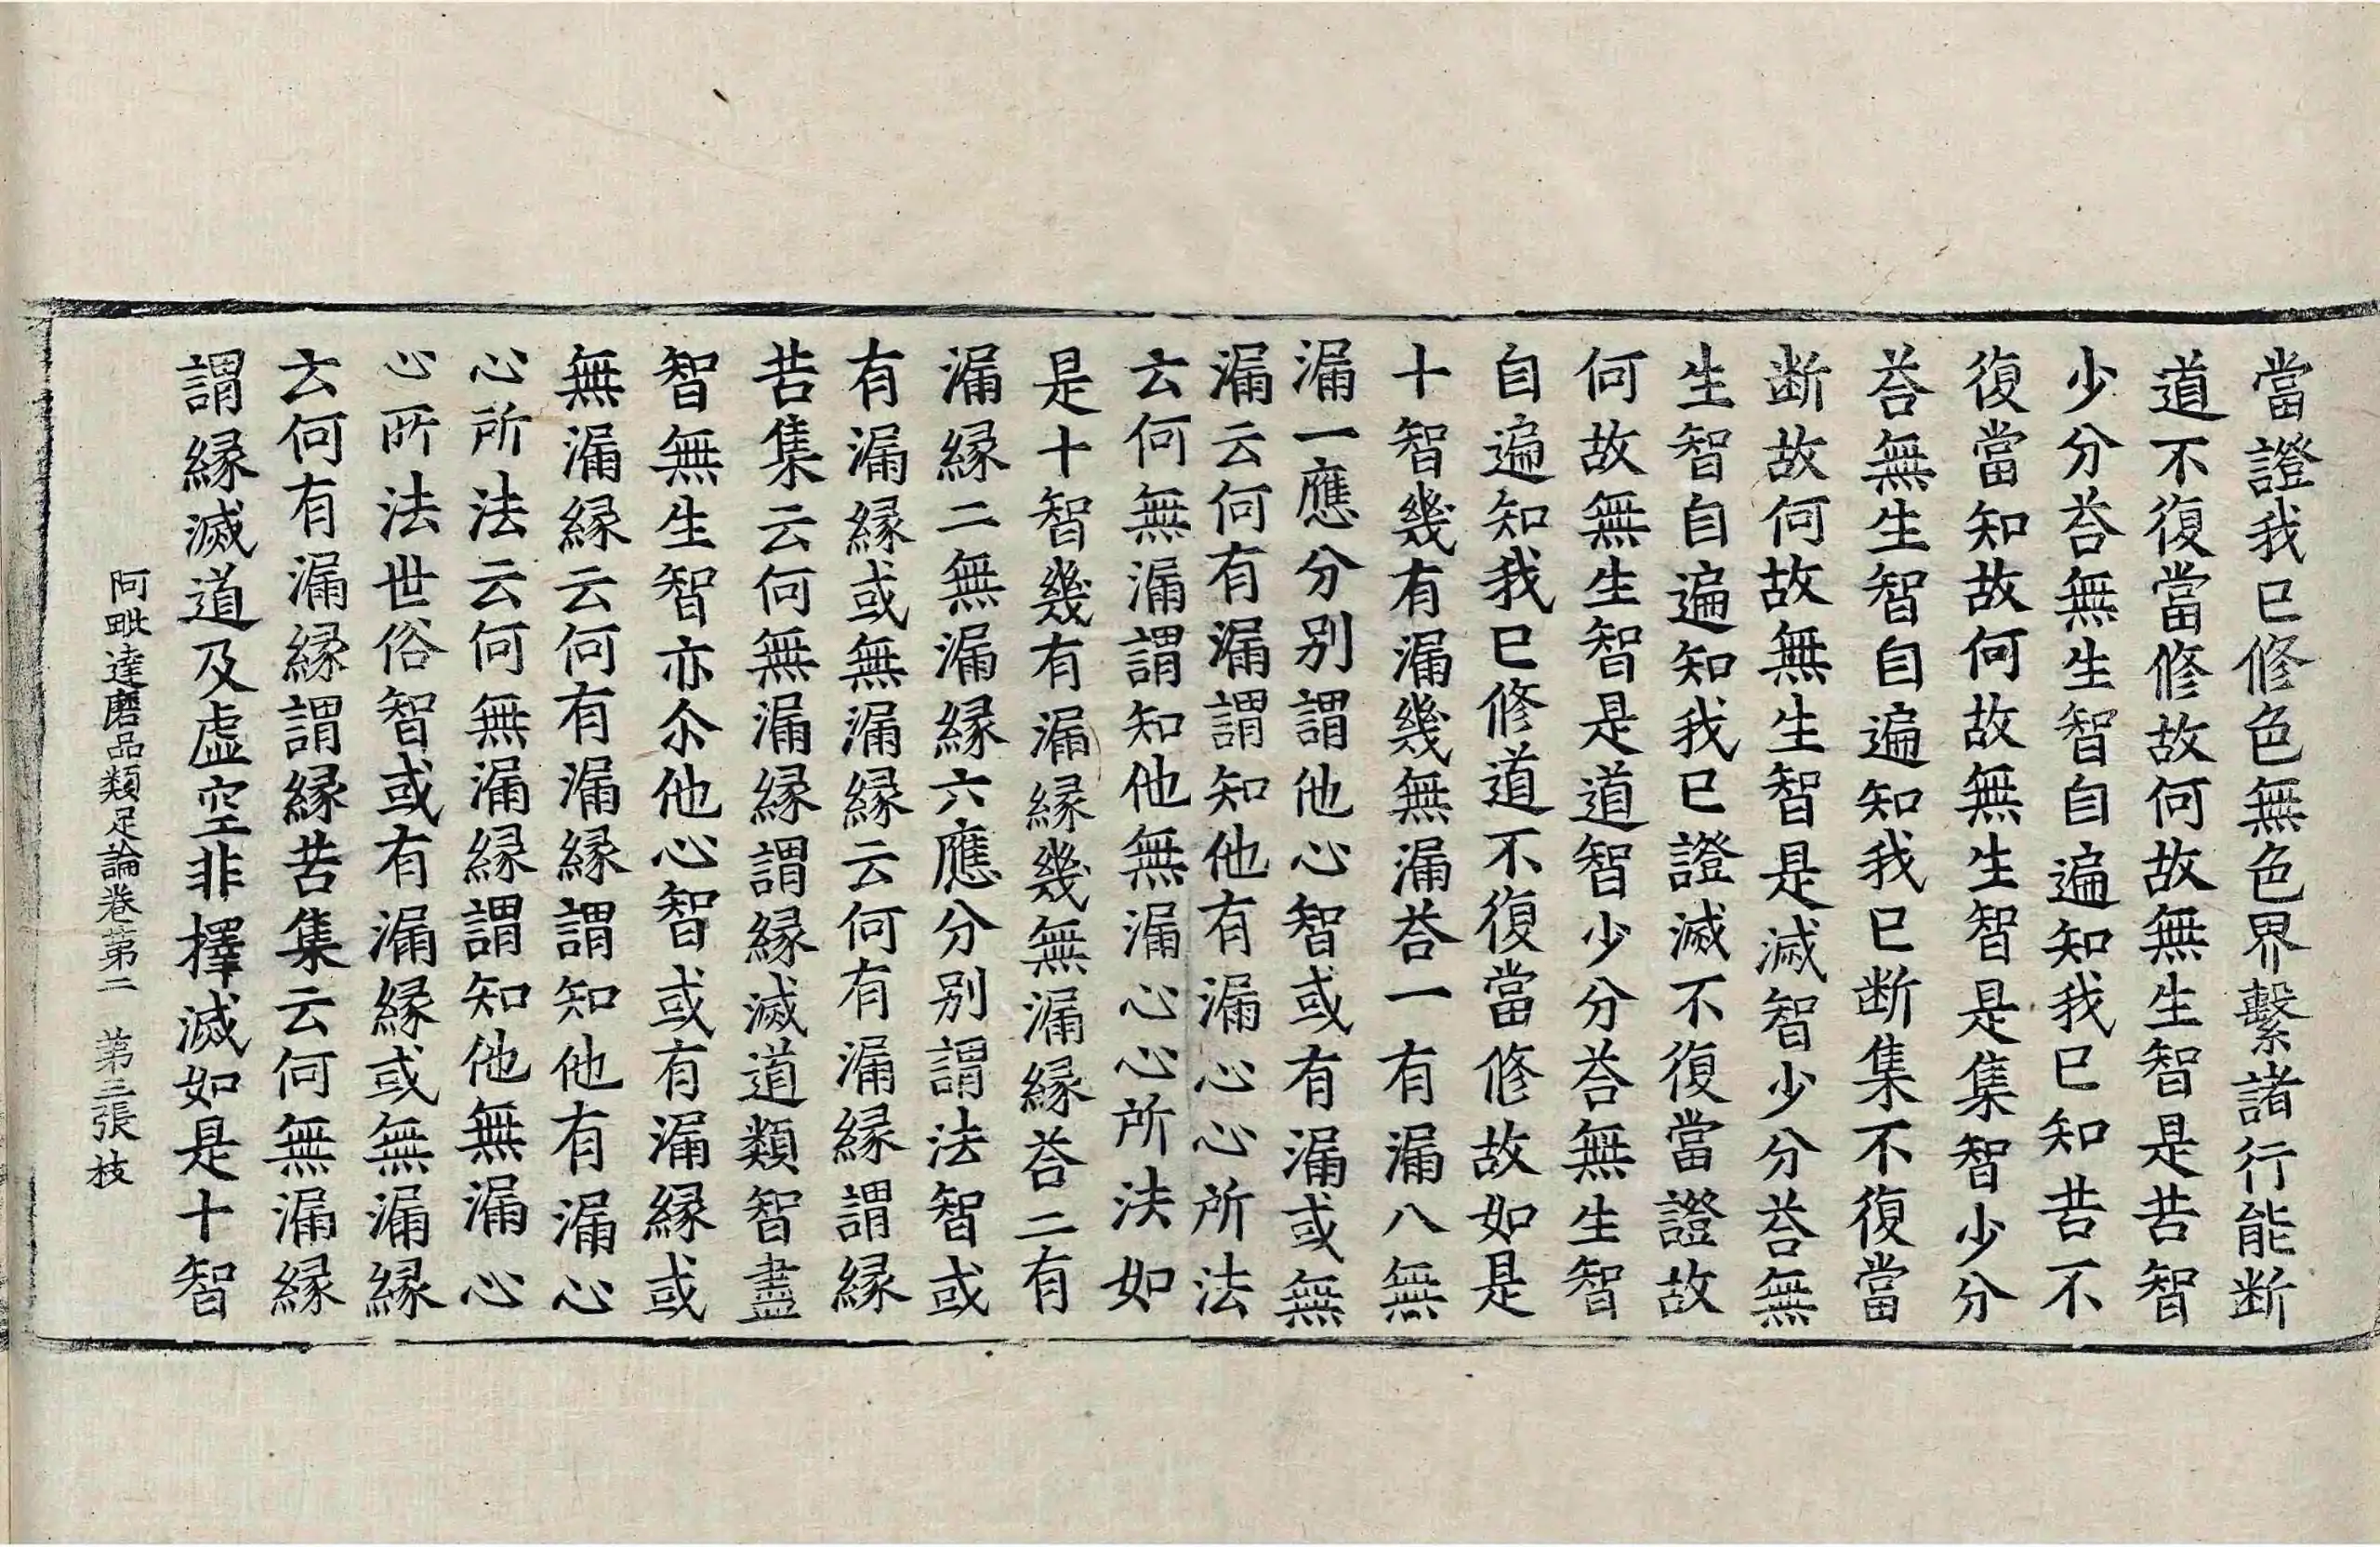 當證我已修色無色界繫諸行能断
道不復當修故何故無生智是苦智
少分荅無生智自遍知我已知苦不
復當知故何故無生智是集智少分
荅無生智自遍知我已断集不復當
断故何故無生智是滅智少分荅無
生智自遍知我已證滅不復當證故
何故無生智是道智少分荅無生智
自遍知我已修道不復當修故如是
十智幾有漏幾無漏荅一有漏八無
漏一應分别謂他心智或有漏或無
漏云何有漏謂知他有漏心心所法
云何無漏謂知他無漏心心所法如
是十智幾有漏縁幾無漏縁荅二有
漏縁二無漏縁六應分别謂法智或
有漏縁或無漏縁云何有漏縁謂縁
苦集云何無漏縁謂縁滅道類智盡
智無生智亦尒他心智或有漏縁或
無漏縁云何有漏縁謂知他有漏心
心所法云何無漏縁謂知他無漏心
心所法世俗智或有漏縁或無漏縁
云何有漏縁謂縁苦集云何無漏縁
謂縁滅道及虛空非擇滅如是十智
阿毗達磨品類足論卷第二 第三張 枝